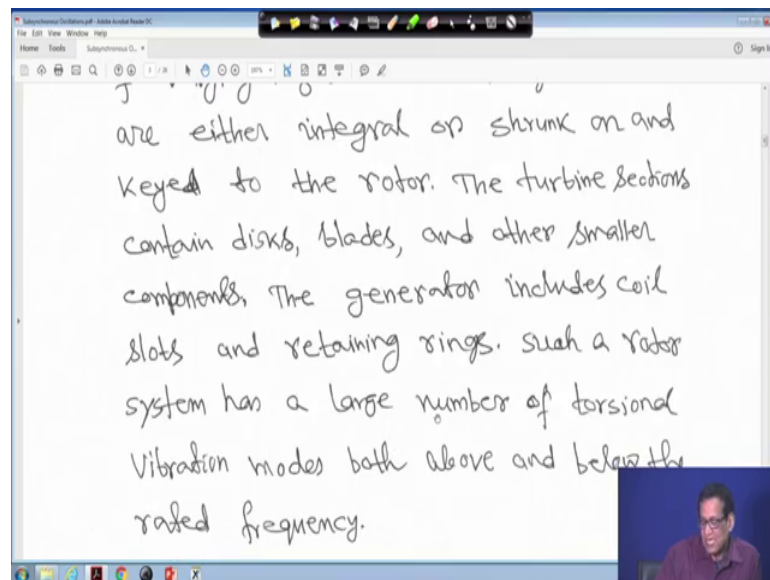 Subsynchronous Oscillations.pdf - Adobe Acrobat Reader DC
File Edit View Window Help
Home Tools Subsynchronous O... ×
Sign In
are either integral or shrunk on and
keyed to the rotor. The turbine sections
contain disks, blades, and other smaller
components. The generator includes coil
slots and retaining rings. such a rotor
system has a large number of torsional
vibration modes both above and below the
rated frequency.